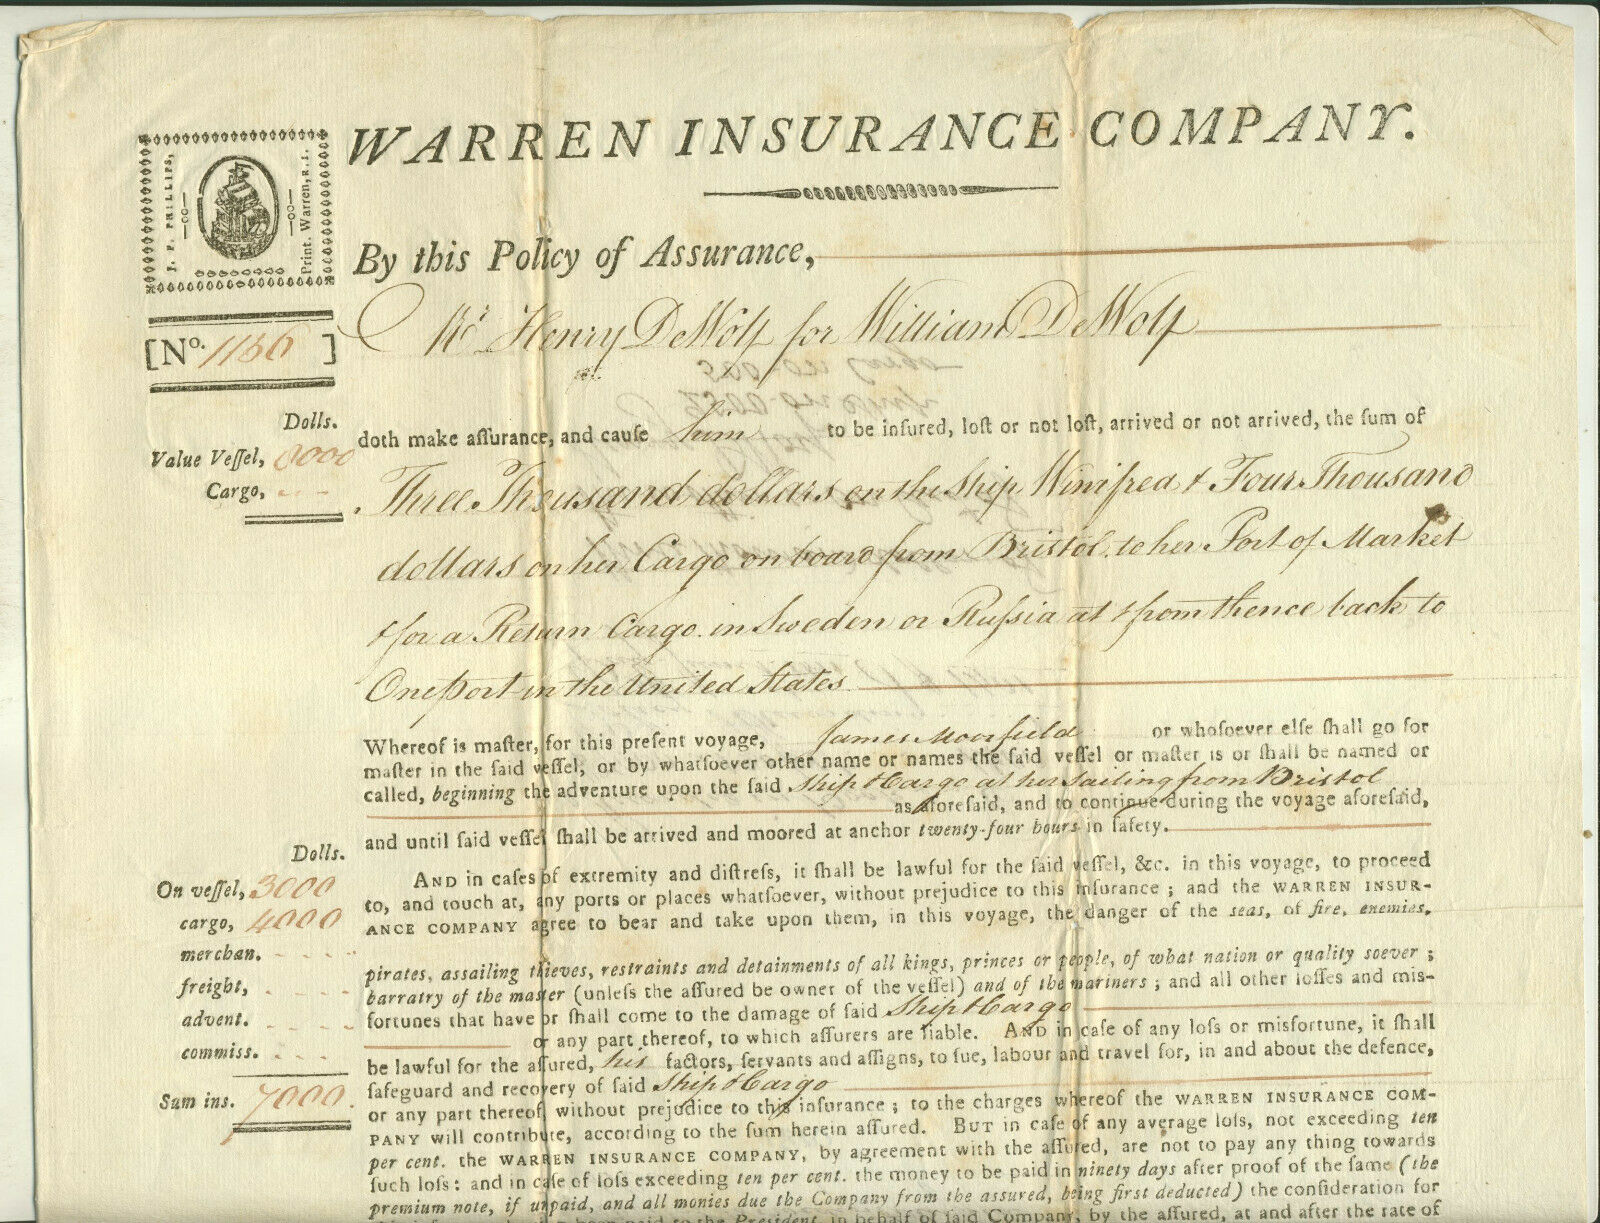 WARREN INSURANCE COMPANY.
J. P. PHILLIPS,
Print. Warren, R. I.
By this Policy of Assurance,
[No. 1136 ]
Henry DeWolf for William DeWolf
Dolls.
Value Veſſel, 8000
Cargo, - - -
doth make aſſurance, and cauſe him to be inſured, loſt or not loſt, arrived or not arrived, the ſum of
Three Thousand dollars on the Ship Winifred & Four Thousand
dollars on her Cargo on board from Bristol to her Port of Market
& for a Return Cargo in Sweden or Ruſsia at & from thence back to
One Port in the United States
Whereof is maſter, for this preſent voyage, James Moorfield or whoſoever elſe ſhall go for
maſter in the ſaid veſſel, or by whatſoever other name or names the ſaid veſſel or maſter is or ſhall be named or
called, beginning the adventure upon the ſaid Ship & Cargo at her Sailing from Bristol
as aforeſaid, and to continue during the voyage aforeſaid,
and until ſaid veſſel ſhall be arrived and moored at anchor twenty-four hours in ſafety.
Dolls.
On veſſel, 3000
cargo, 4000
merchan. - - - -
freight, - - - -
advent. - - - -
commiss. - - -
Sum ins. 7000.
AND in caſes of extremity and diſtreſs, it ſhall be lawful for the ſaid veſſel, &c. in this voyage, to proceed
to, and touch at, any ports or places whatſoever, without prejudice to this inſurance ; and the WARREN INSUR-
ANCE COMPANY agree to bear and take upon them, in this voyage, the danger of the seas, of fire, enemies,
pirates, assailing thieves, restraints and detainments of all kings, princes or people, of what nation or quality soever ;
barratry of the master (unleſs the aſſured be owner of the veſſel) and of the mariners ; and all other loſſes and miſ-
fortunes that have or ſhall come to the damage of ſaid Ship & Cargo
or any part thereof, to which aſſurers are liable. AND in caſe of any loſs or misfortune, it ſhall
be lawful for the aſſured, his factors, ſervants and aſſigns, to ſue, labour and travel for, in and about the defence,
ſafeguard and recovery of ſaid Ship & Cargo
or any part thereof, without prejudice to this inſurance ; to the charges whereof the WARREN INSURANCE COM-
PANY will contribute, according to the ſum herein aſſured. BUT in caſe of any average loſs, not exceeding ten
per cent. the WARREN INSURANCE COMPANY, by agreement with the aſſured, are not to pay any thing towards
ſuch loſs : and in caſe of loſs exceeding ten per cent. the money to be paid in ninety days after proof of the ſame (the
premium note, if unpaid, and all monies due the Company from the assured, being first deducted) the conſideration for
been paid to the President, in behalf of ſaid Company, by the aſſured, at and after the rate of